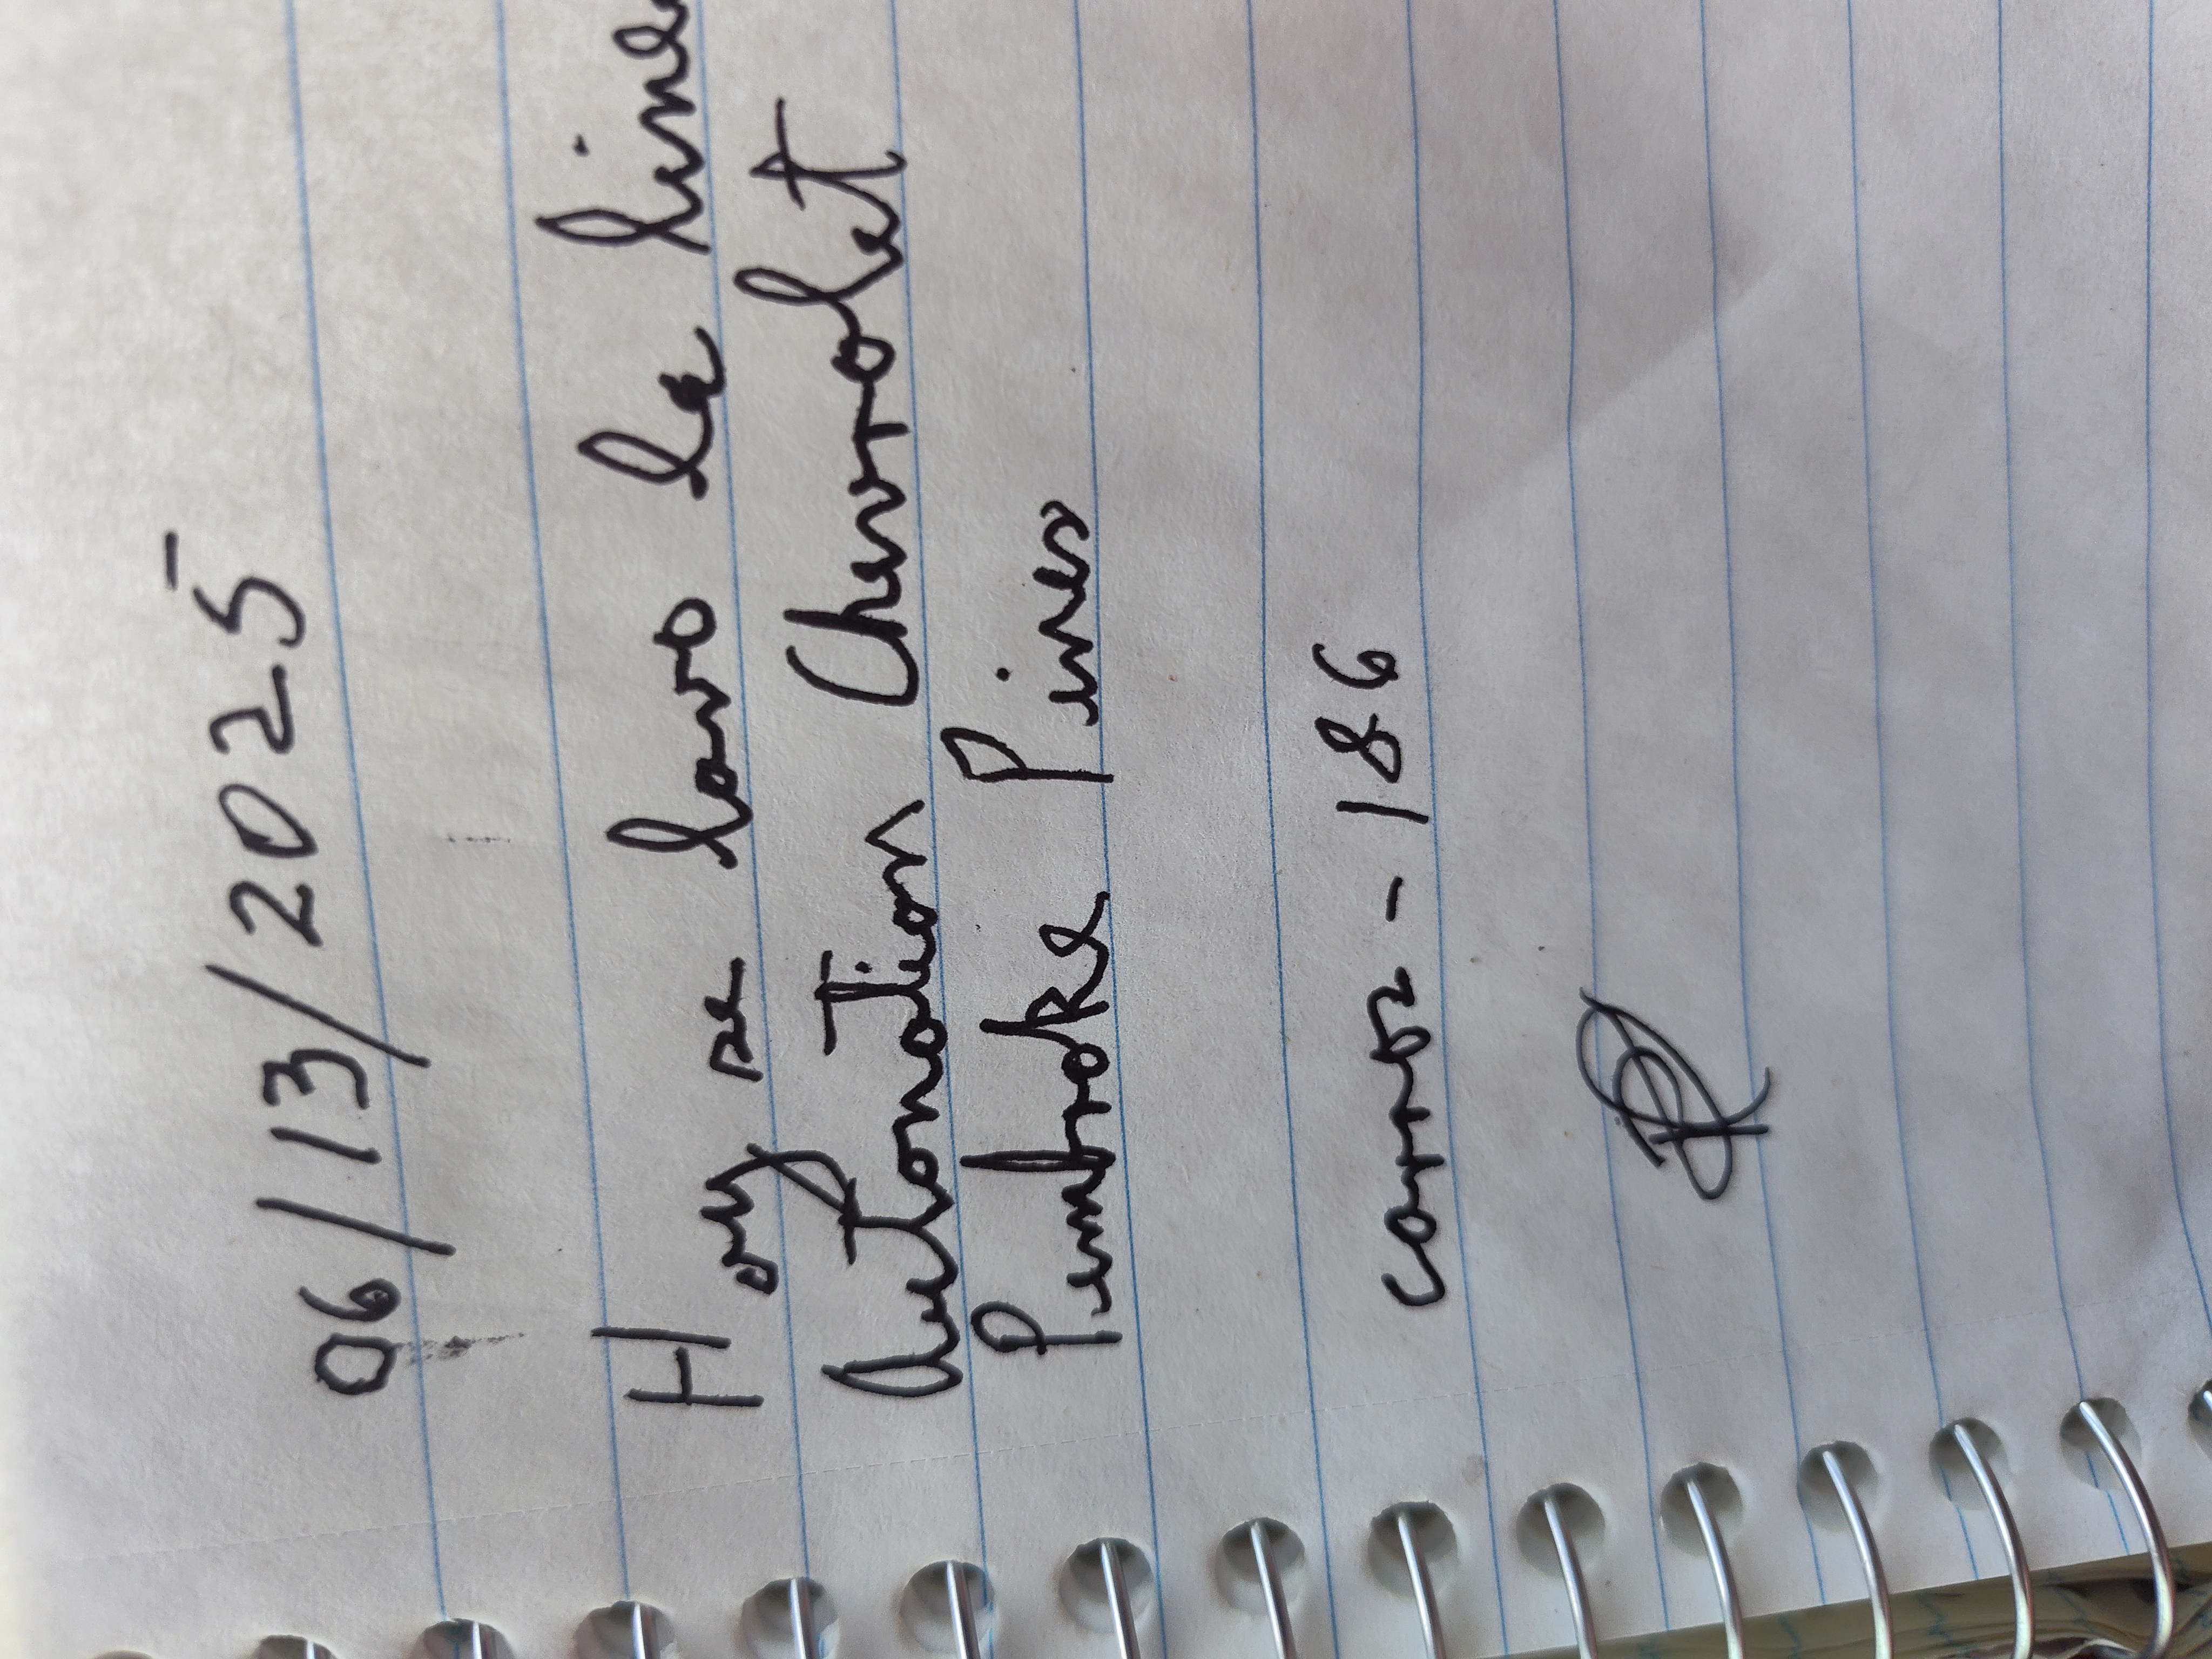 06/13/2025
Hoy se lavo la linea
Autonation Chevrolet
Pembroke Pines
carros - 186